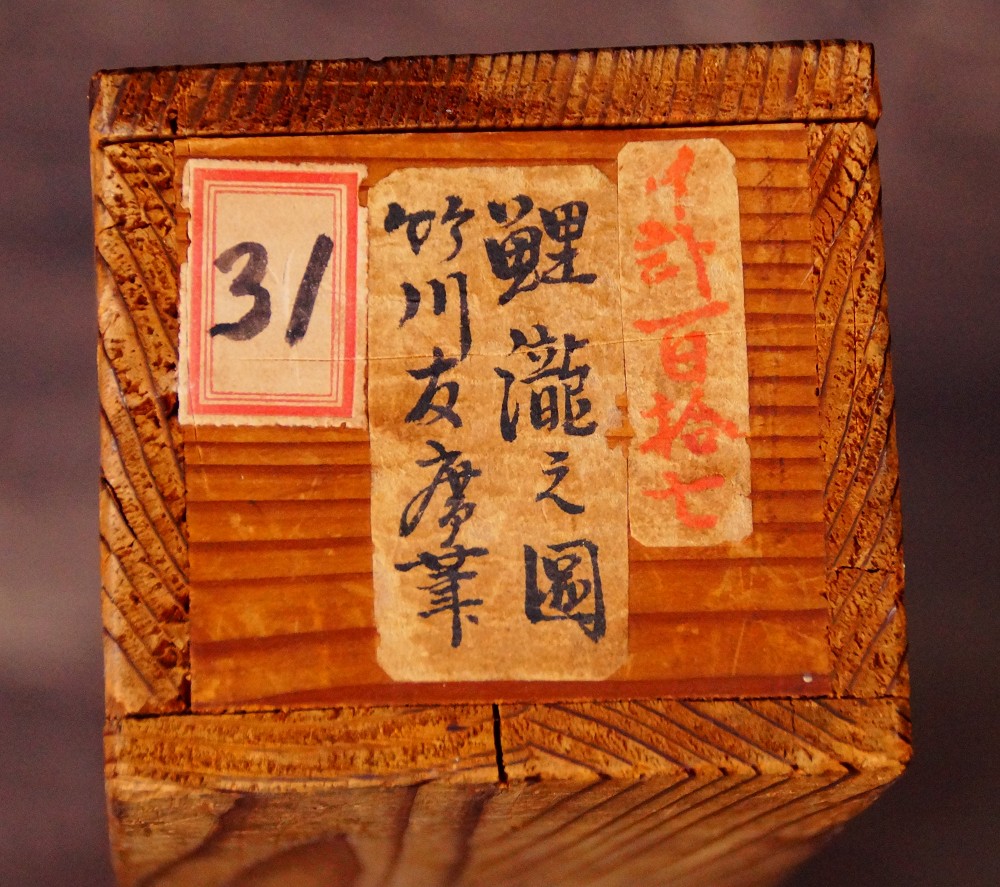 百拾七
鯉瀧之圖
竹川友廣筆
31